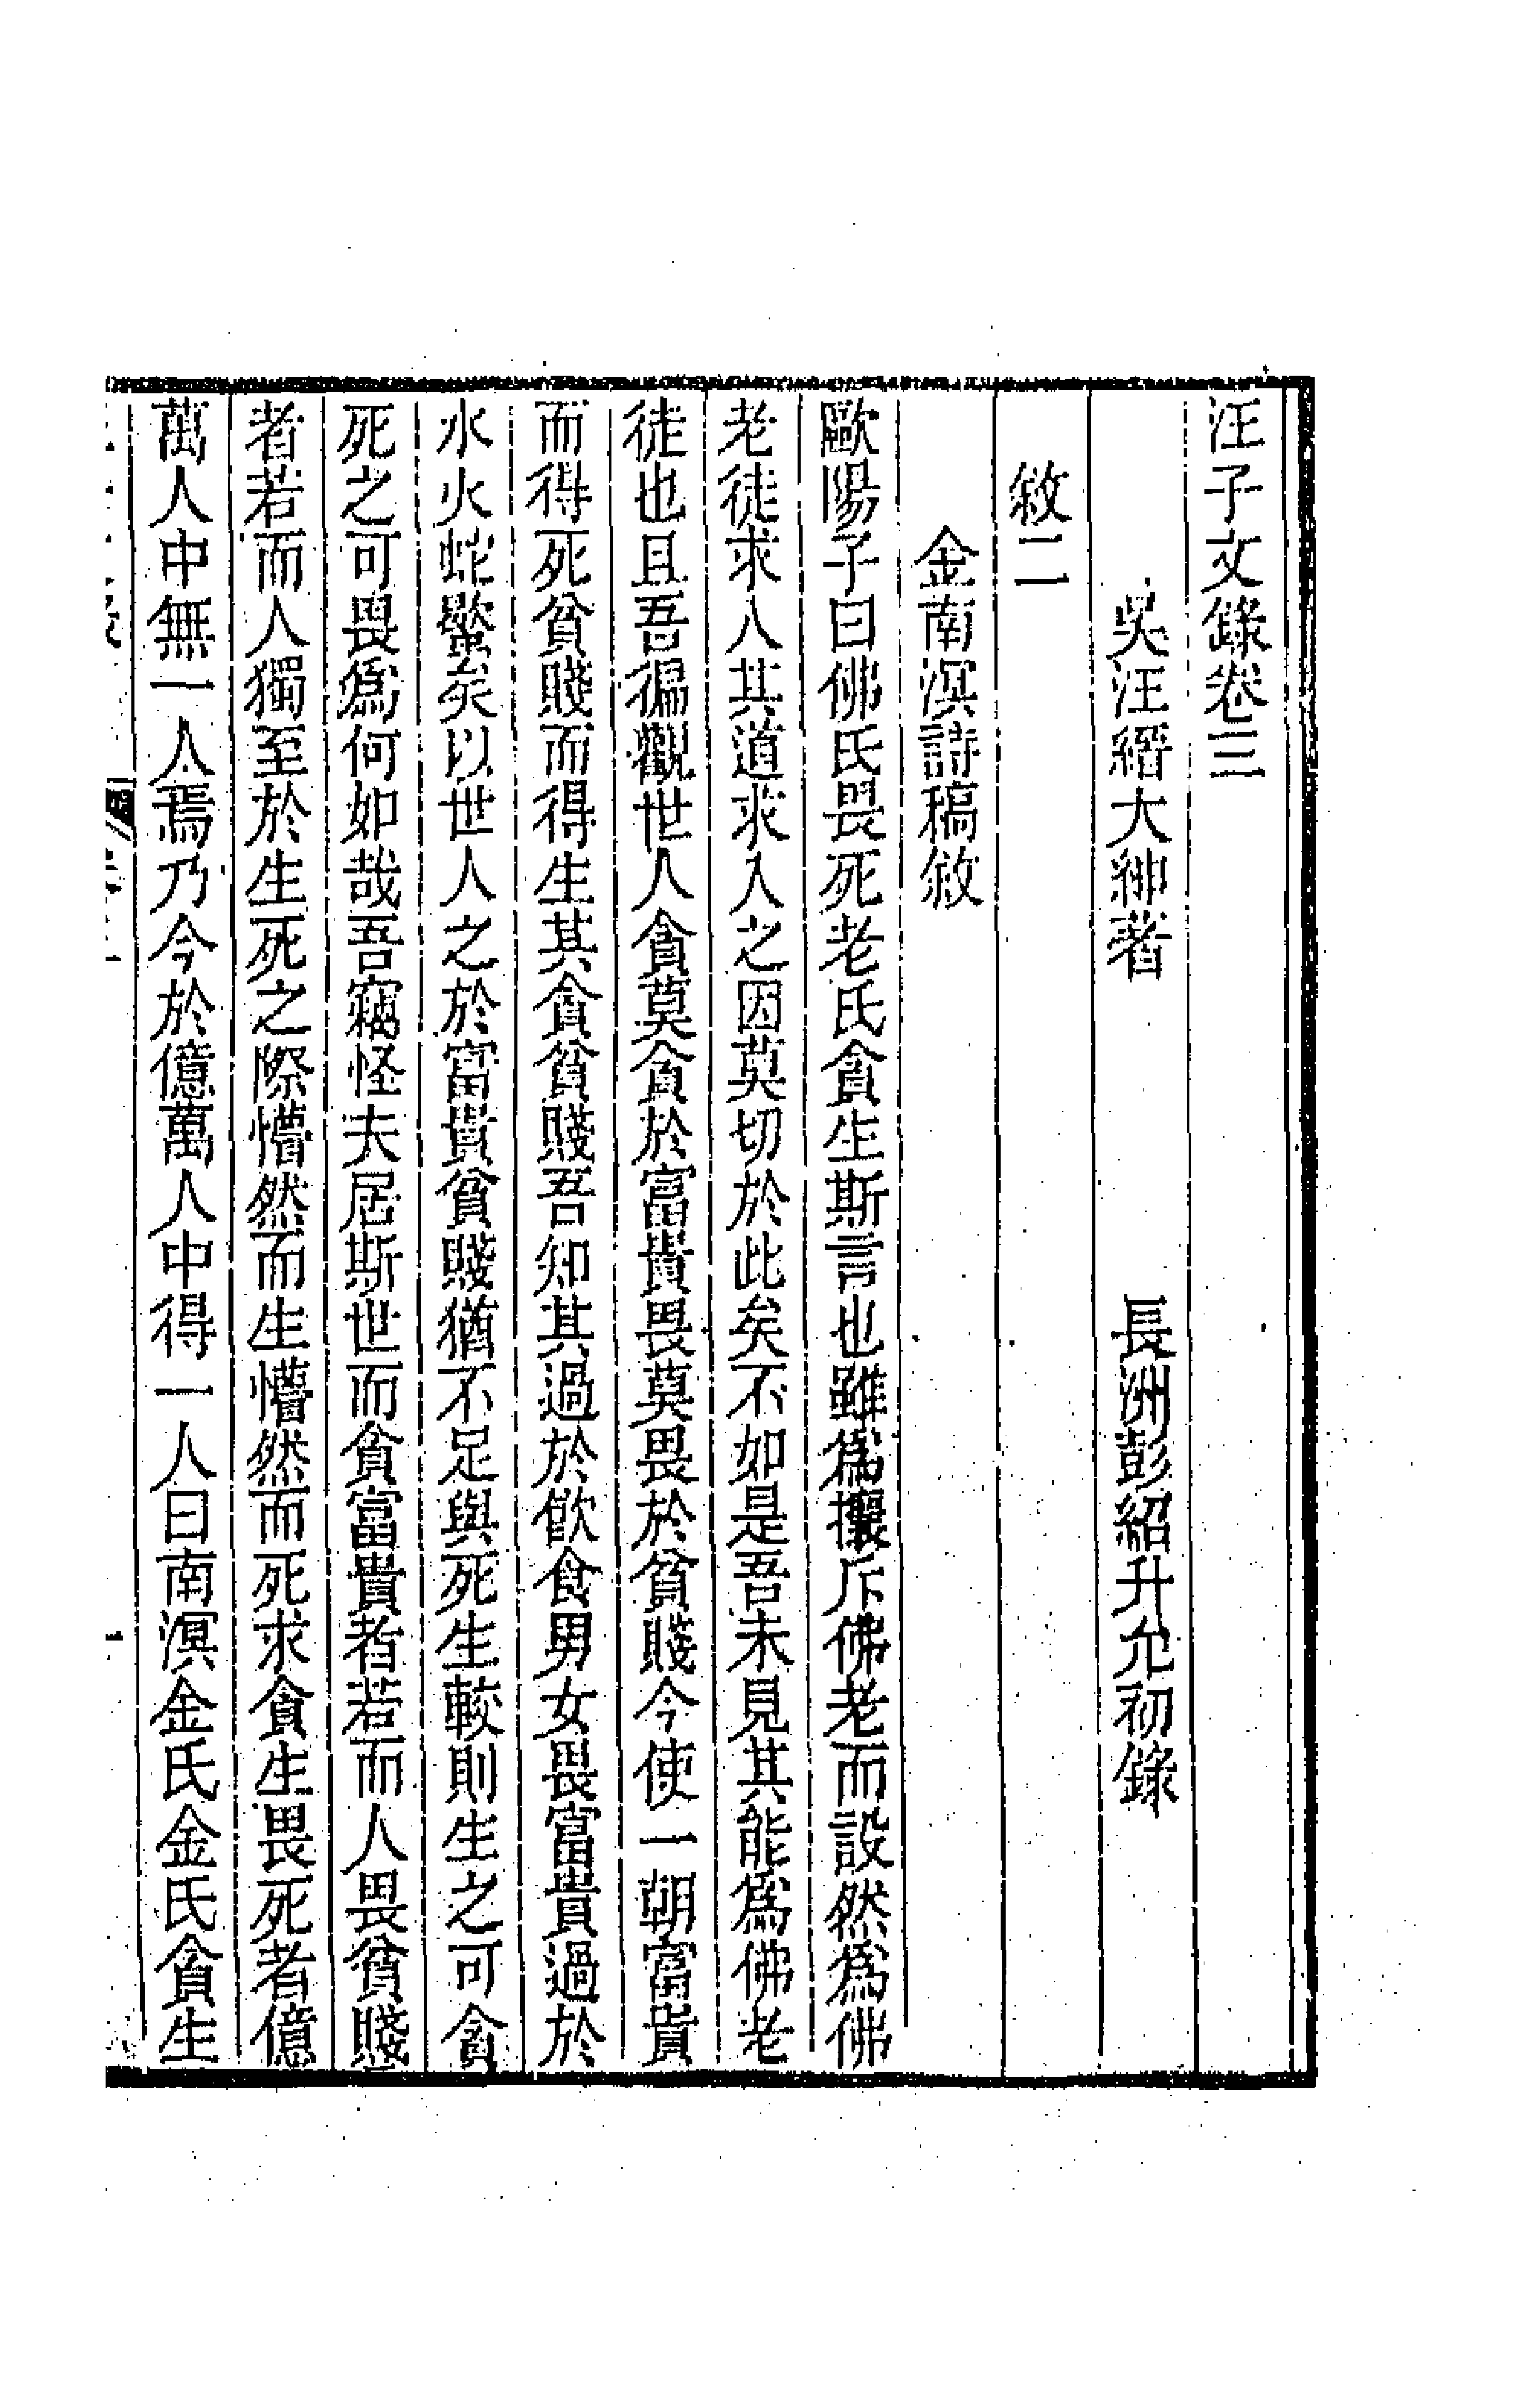 汪子文錄卷三
吳汪縉大紳著　長洲彭紹升允初錄
敘二
金南溟詩稿敘
歐陽子曰佛氏畏死老氏貪生斯言也雖爲攘斥佛老而設然爲佛
老徒求人其道求入之因莫切於此矣不如是吾未見其能爲佛老
徒也且吾徧觀世人貪莫貪於富貴畏莫畏於貧賤今使一朝富貴
而得死貧賤而得生其貪貧賤吾知其過於飮食男女畏富貴過於
水火蛇蠍矣以世人之於富貴貧賤猶不足與死生較則生之可貪
死之可畏爲何如哉吾竊怪夫居斯世而貪富貴者若而人畏貧賤
者若而人獨至於生死之際懵然而生懵然而死求貪生畏死者億
萬人中無一人焉乃今於億萬人中得一人曰南溟金氏金氏貪生